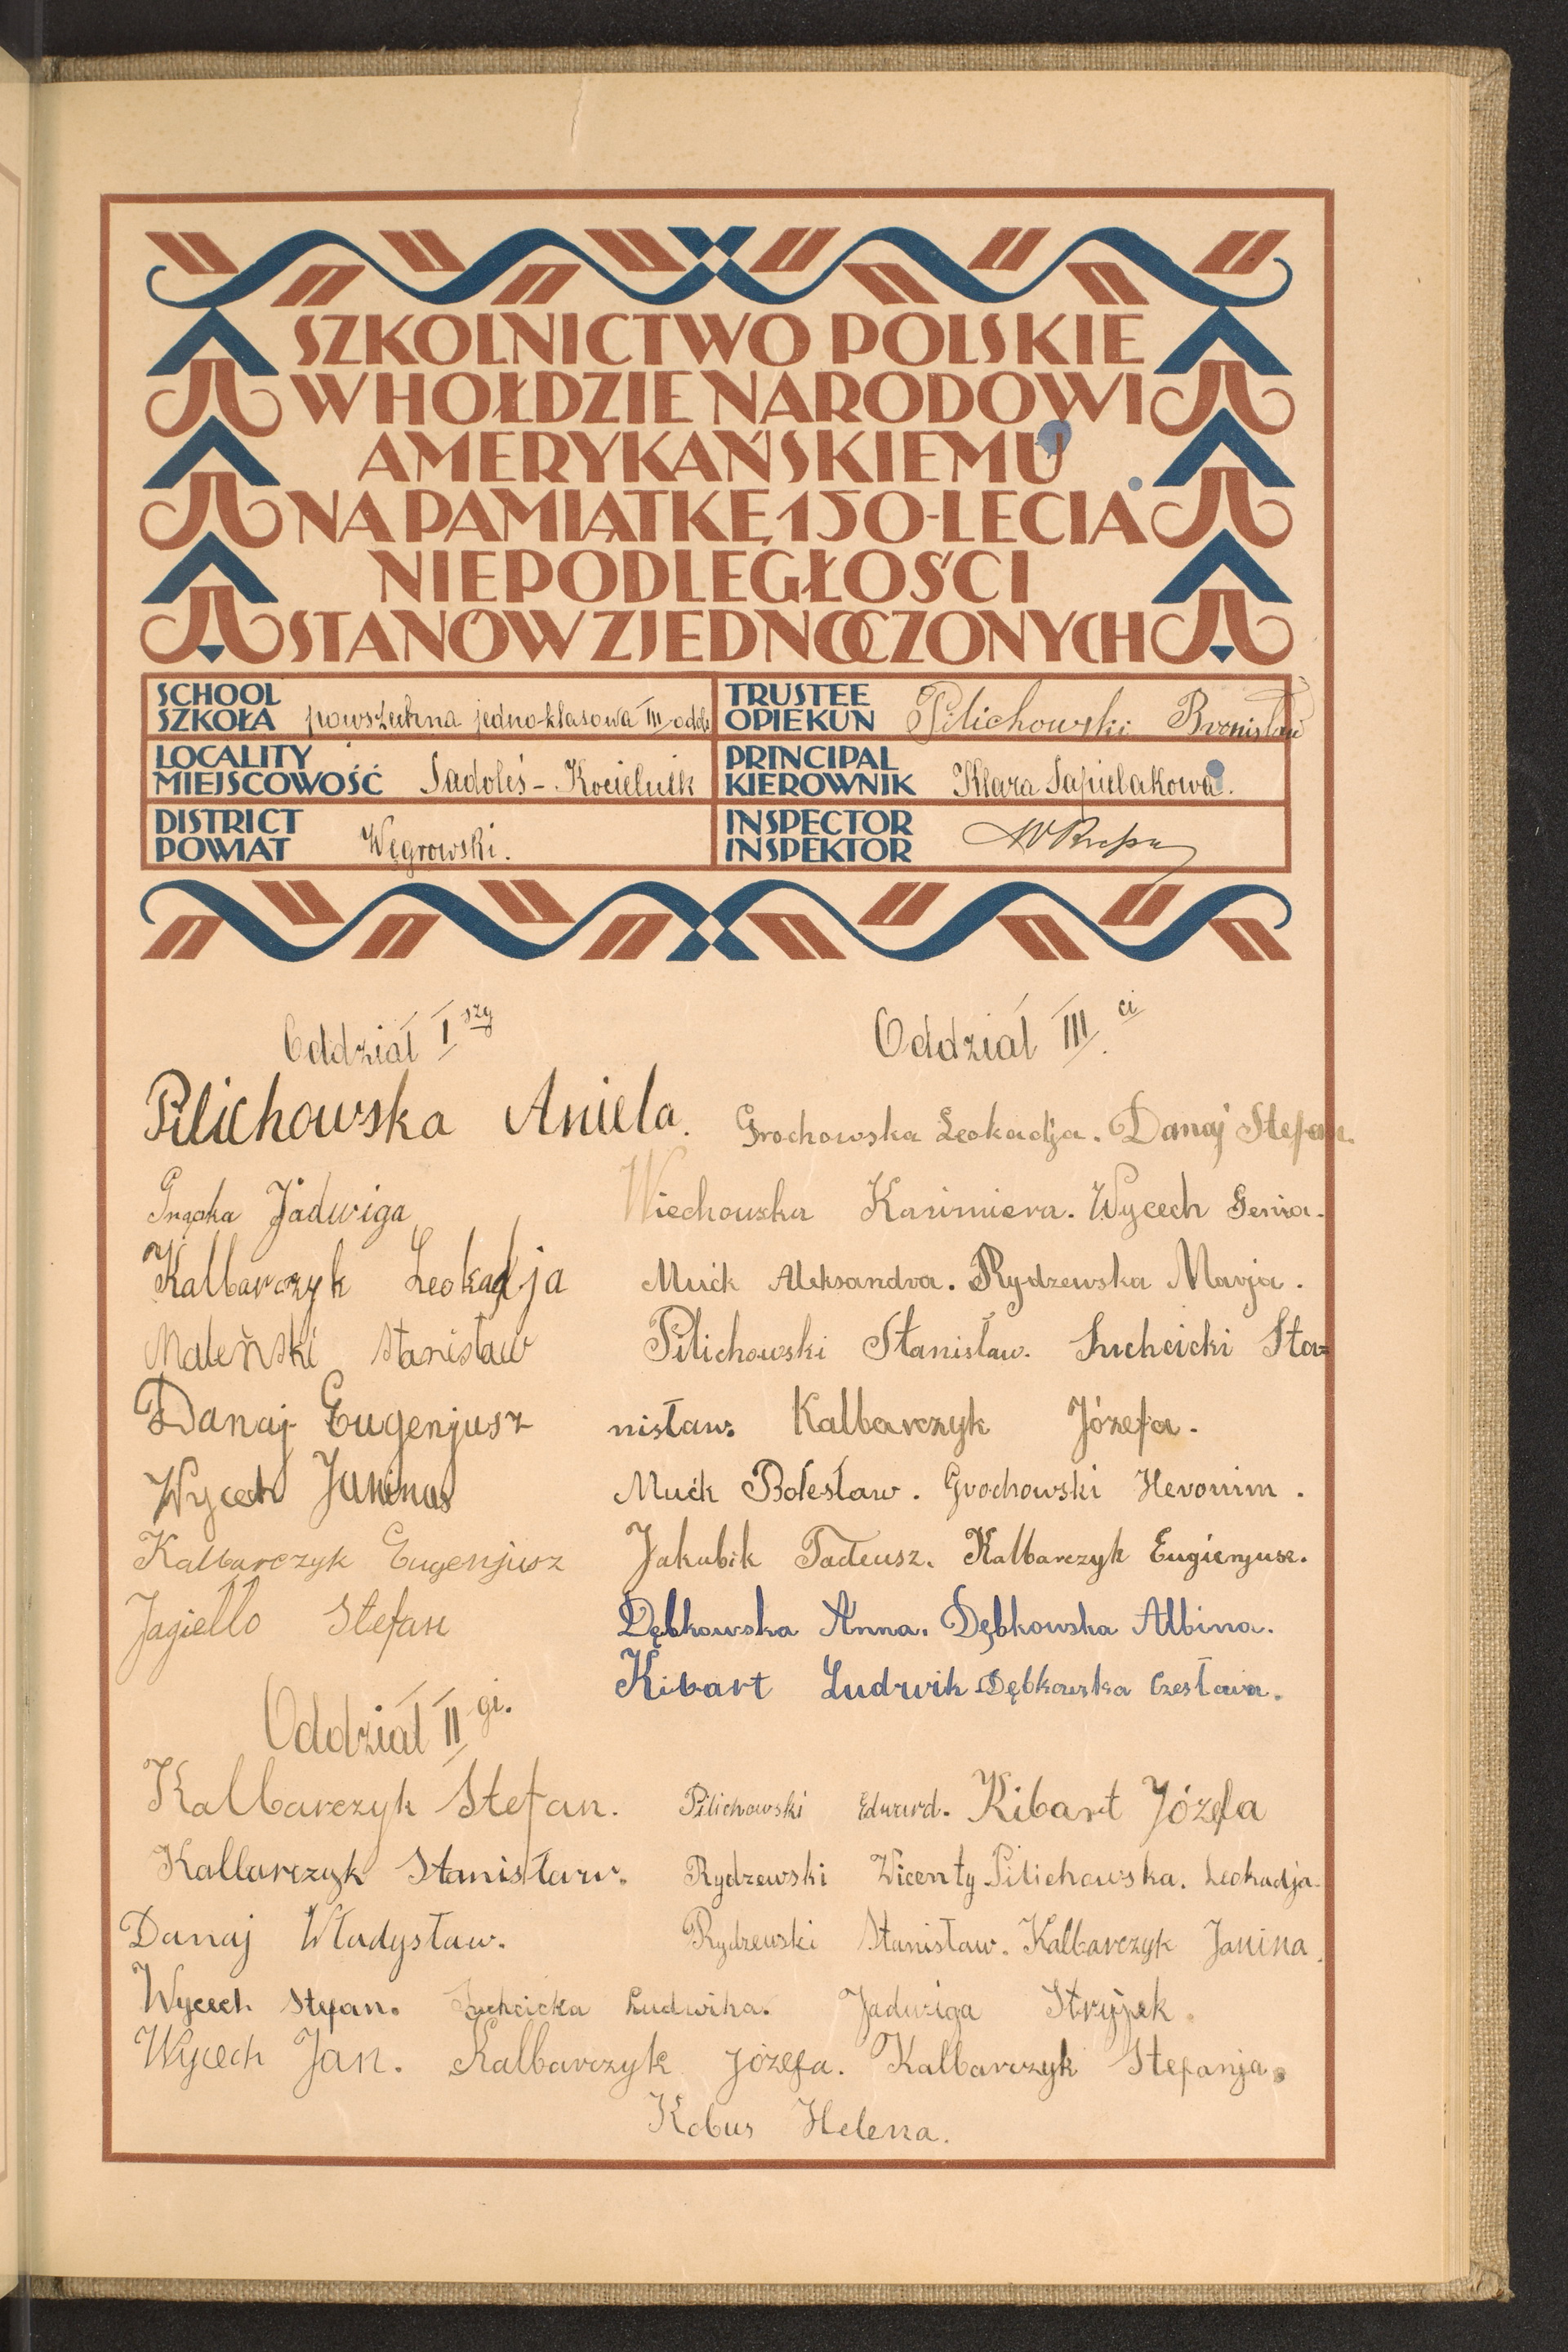 SZKOLNICTWO POLSKIE
W HOŁDZIE NARODOWI
AMERYKAŃSKIEMU
NA PAMIĄTKĘ 150-LECIA
NIEPODLEGŁOŚCI
STANÓW ZJEDNOCZONYCH
SCHOOL
SZKOŁA powszechna jedno-klasowa III oddz
TRUSTEE
OPIEKUN Pilichowski Bronisław
LOCALITY
MIEJSCOWOŚĆ Sadoleś - Kocielnik
PRINCIPAL
KIEROWNIK Klara Sapielakowa.
DISTRICT
POWIAT Węgrowski.
INSPECTOR
INSPEKTOR
Oddział I szy
Pilichowska Aniela.
Jadwiga
Kalbarczyk Leokadja
Maleński Stanisław
Danaj Eugenjusz
Wycech Janina
Kalbarczyk Eugenjusz
Jagiełło Stefan
Oddział III ci
Grochowska Leokadja. Danaj Stefan.
Wiechowska Kazimiera. Wycech Genia.
Mućk Aleksandra. Rydzewska Marja.
Pilichowski Stanisław. Suchcicki Sta=
nisław. Kalbarczyk Józefa.
Mućk Bolesław. Grochowski Heronim.
Jakubik Tadeusz. Kalbarczyk Eugienjusz.
Dębkowska Anna. Dębkowska Albina.
Kibart Ludwik Dębkowska Czesława.
Oddział II gi.
Kalbarczyk Stefan. Pilichowski Edward. Kibart Józefa
Kalbarczyk Stanisław. Rydzewski Wicenty Pilichowska. Leokadja.
Danaj Władysław. Rydzewski Stanisław. Kalbarczyk Janina.
Wycech Stefan. Suchcicka Ludwika. Jadwiga Stryjek.
Wycech Jan. Kalbarczyk Józefa. Kalbarczyk Stefanja.
Kobus Helena.